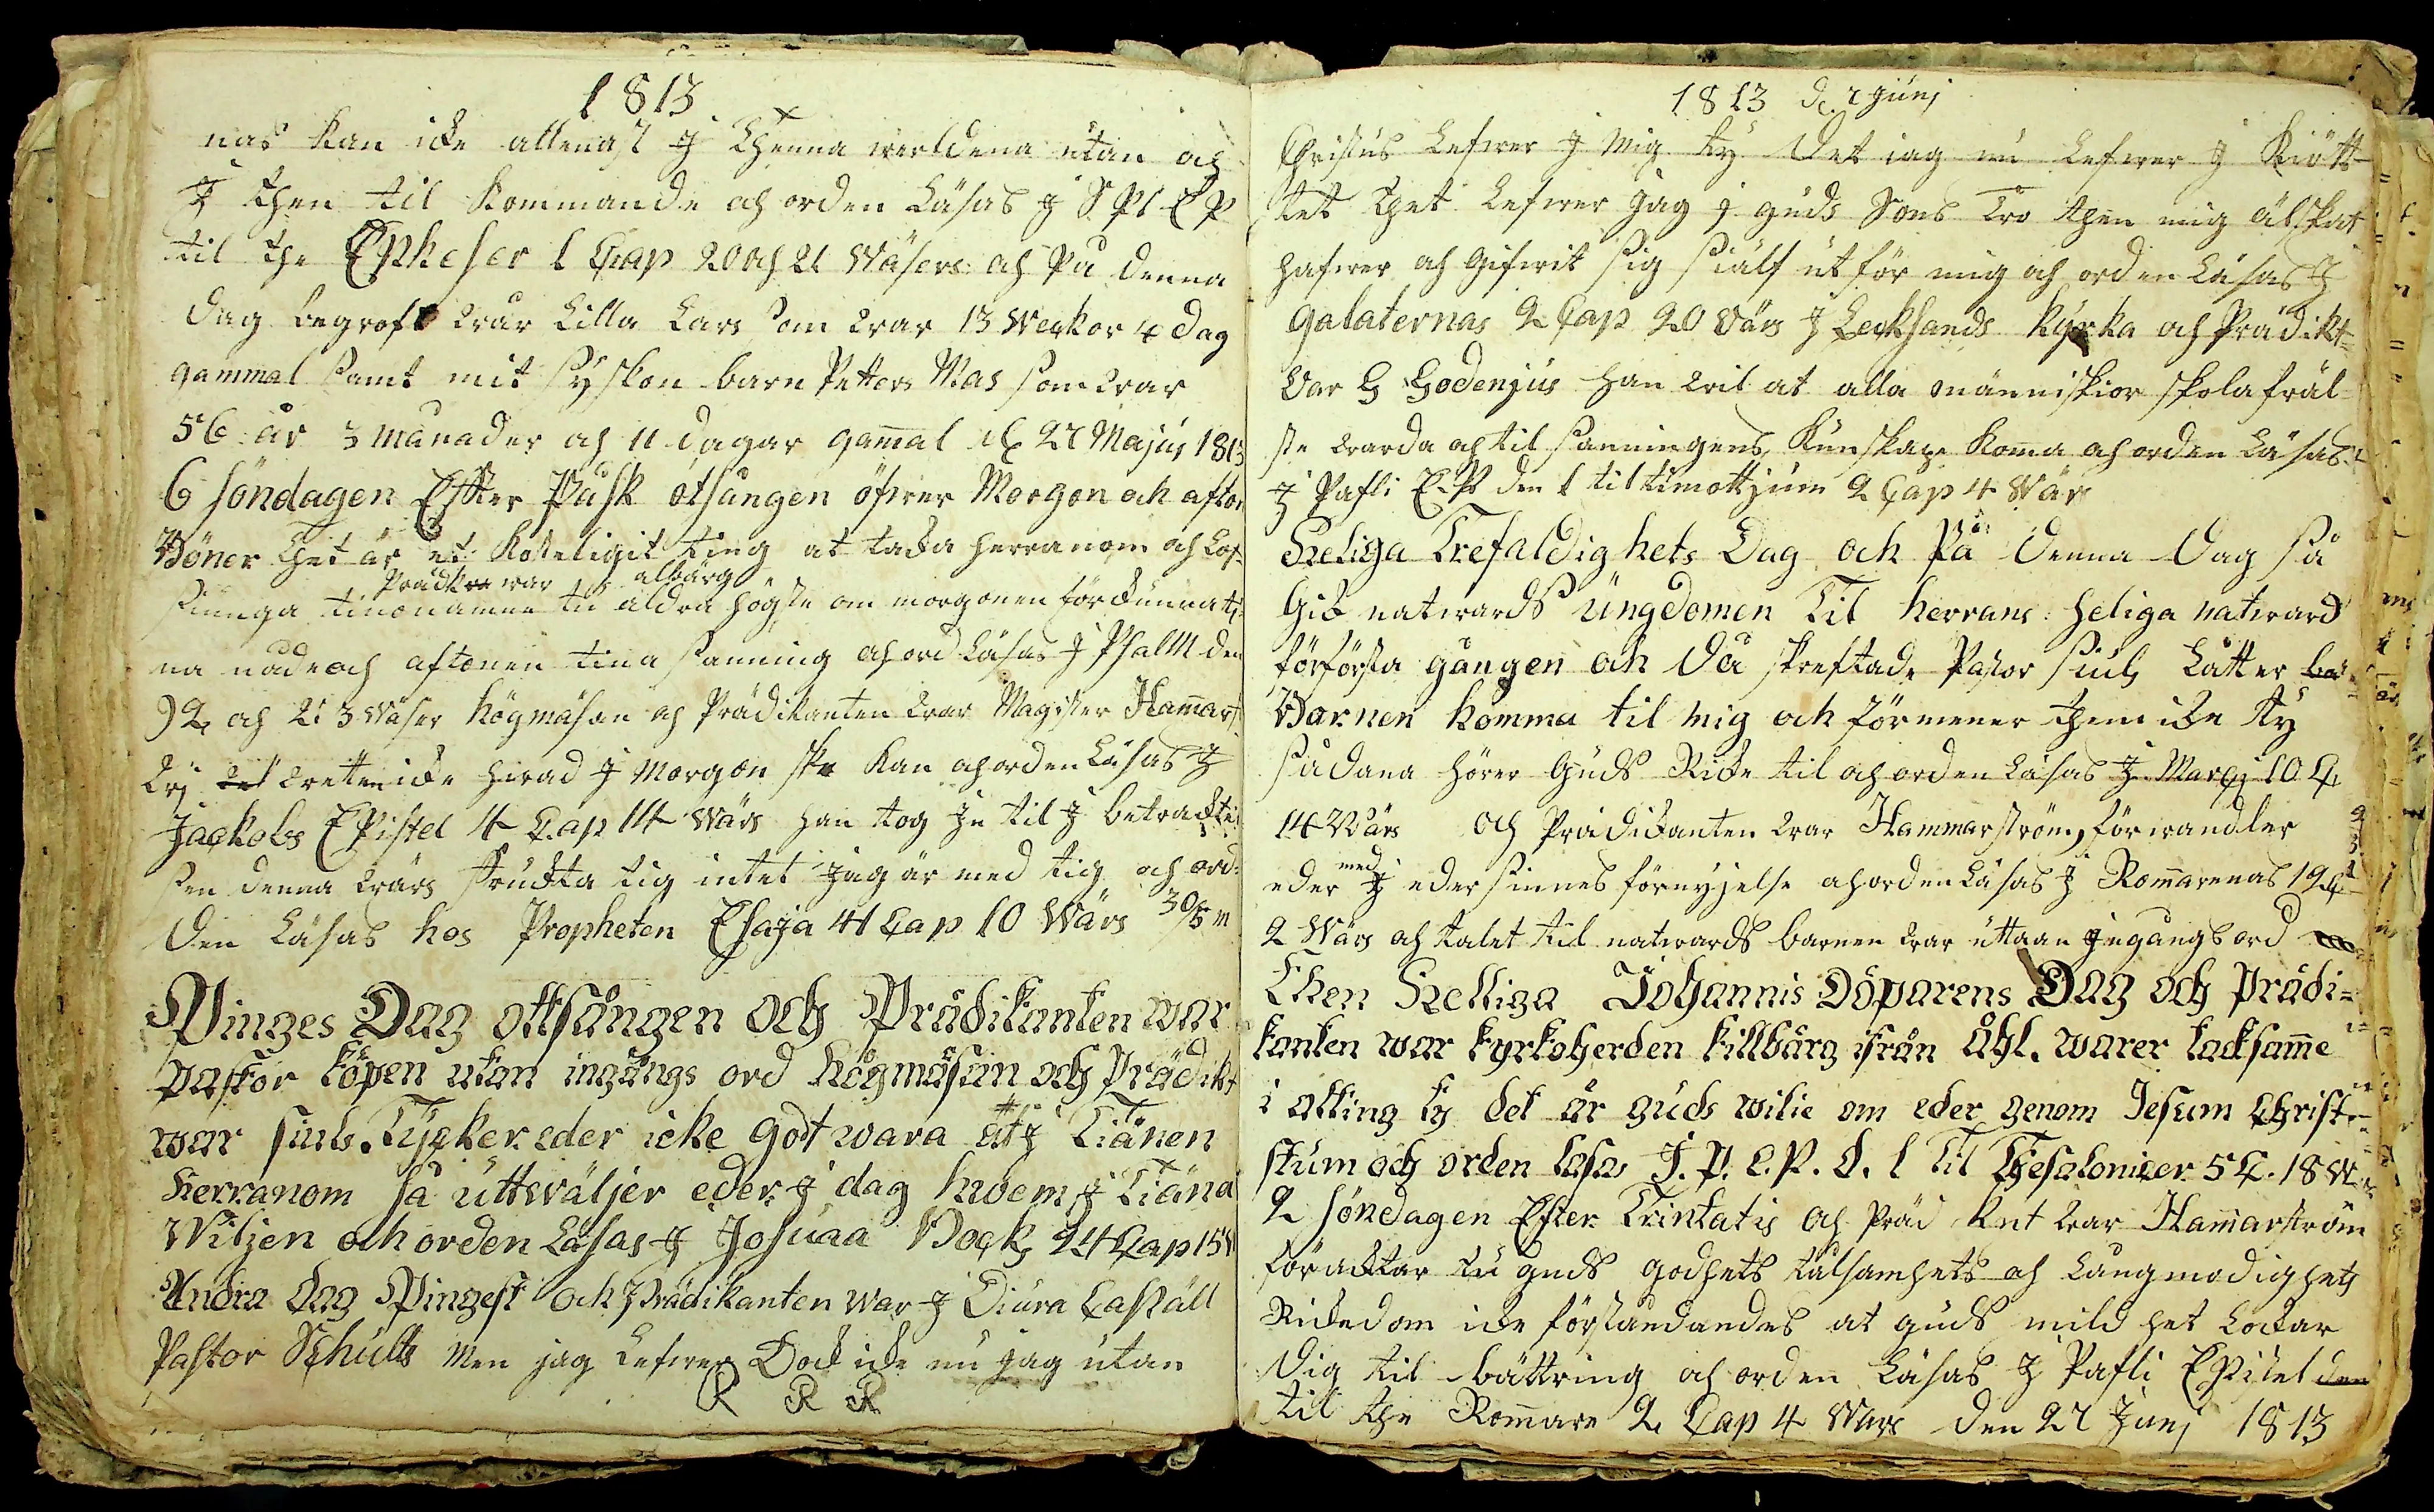 1813
nas kan icke allenast J thenna werldena utan ock
J then til kommande och orden Läsas J S Pl EP
til the Epheser 1 Cap 20 och 21 Wäsere och På denna
dag begrofs wår Lilla Lars som war 13 Weckor 4 dag
gammal samt mit syskon barn Petters Mas som war
56 år 3 månader och 11 dagar gamal d 27 Majus 1813
6 söndagen Effter Påsk otsången öfwer Morgon och afton
Böner thet är et kosteligit ting at tacka herranom och Lof
Prädkn war albärg
siunga tino namne tu aldra högste om morgonen förkunna ti
na nåde och aftonen tina sanning och ord Läsas J Psalm den
92 och 2: 3 wäser högmäsan och Prädikanten war Magister Hamarst
J wetten icke hwad J Morgon ske kan och orden Läsas J
Jackobs EPistel 4 Cap 14 Wärs han tog in til J betracktel
sen denna wärs fruckta tig intet jag är med tig och ord
den Läsas hos Propheten Esaja 41 Cap 10 Wärs 30/5 m
Pinges Dag ottsången och Prädikanten war
pastor köpen utan ingångs ord högmäsan och Prädikt
war siuls. Tycker eder icke godt wara at J Tiänen
Herranom så uttwäljer eder J dag hwem J Tiäna
Wiljen och orden Läsas J Josuaa Bock 24 Cap 15 W
Andra dag Pingest och Prädikanten war J Diura Caställ
Pastor Schults Men jag Lefwer Dock icke nu jag utan
R R R
1813 d. 7 Junj
Christus Lefwer J Mig ty det iag nu Lefwer J Kiött
tet thet Lefwer Jag J guds Sons Tro then mig älskat
hafwer och Gifwit sig sielf ut för mig och orden Läsas J
galaternas 2 Cap 20 Wärs J Lecksands kyrka och Prädikt
war G Godenjus han wil at alla människior skola fräl
ste warda och til sanningens kunskape koma och orden Läsas
J Pafli E.P den 1 til timottjum 2 Cap 4 Wärs
Heliga Trefaldighets Dag och På denna dag så
Gik natward ungdomen Til herrans heliga natward
för första gången och då skreftade Pastor siuls Låtter
Barnen komma til mig och förmener them icke ty
sådana hörer Guds Ricke til och orden Läsas J Marcj 10 C
14 Wärs och Prädickanten war Hammarström, förwandler
eder med J eder sinnes förnyjelse och orden Läsas J Romarenas 12 C
2 Wärs och talet til natwards barnen war uttaan Jngångs ord
Then Helliga Johannis Döparens Dag och prädi=
kanten war kyrkoherden killbärg ifrån Åhl. warer tacksamme
i alting ty det är guds wilie om eder genom Jesum Christ
stum och orden läsas J. P. E. P. d. 1 Til Thesalonicer 5 C. 18 W
2 söndagen Efter Trintatis och Präd knt war Hamarström
föracktar tu guds godhets tålsamhets och Långmodighets
Rickedom icke förståndandes at guds mildhet Lockar
dig til bättring och orden Läsas J Pafli EPistel den
til the Romare 2 Cap 4 Wärs den 27 Junj 1813